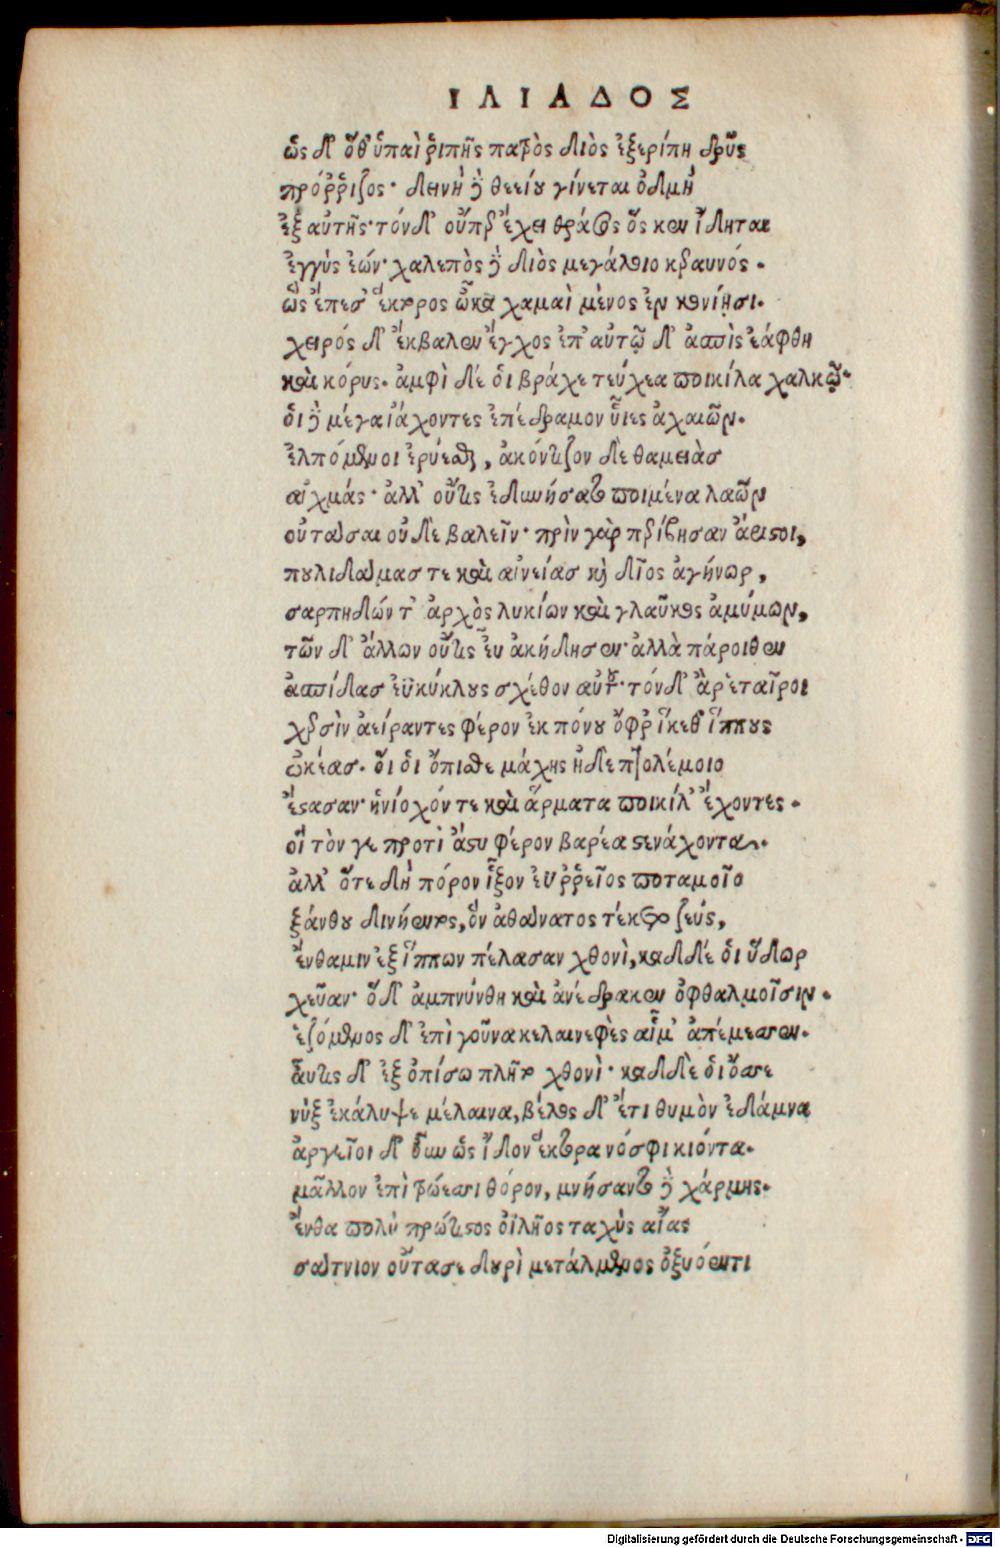 ΙΛΙΑΔΟΣ
ὣς δ' ὅθ' ὑπαὶ ῥιπῆς πατρὸς διὸς ἐξερίπῃ δρῦς
πρόῤῥιζος· δεινὴ δὲ θεείου γίνεται ὀδμὴ
ἐξ αὐτῆς· τόνδ' οὔπερ ἔχει θράσος ὅς κεν ἴδηται
ἐγγὺς ἐών· χαλεπὸς δὲ διὸς μεγάλοιο κεραυνός.
ὣς ἔπεσ' ἕκτορος ὦκα χαμαὶ μένος ἐν κονίῃσι.
χειρός δ' ἔκβαλεν ἔγχος ἐπ' αὐτῷ δ' ἀσπὶς ἐάφθη
καὶ κόρυς. ἀμφὶ δέ οἱ βράχε τεύχεα ποικίλα χαλκῷ.
οἱ δὲ μέγα ἰάχοντες ἐπέδραμον ὗιες ἀχαιῶν.
ἐλπόμενοι ἐρύεσθαι, ἀκόντιζον δὲ θαμειὰσ
αἰχμάς· ἀλλ' οὔτις ἐδυνήσατο ποιμένα λαῶν
οὐτάσαι οὐδὲ βαλεῖν· πρὶν γὰρ περίβησαν ἄριστοι,
πουλυδάμας τε καὶ αἰνείασ καὶ δῖος ἀγήνωρ,
σαρπηδών τ' ἀρχὸς λυκίων καὶ γλαῦκος ἀμύμων,
τῶν δ' ἄλλων οὔτις εὑ ἀκήδησεν· ἀλλὰ πάροιθεν
ἀσπίδασ εὐκύκλους σχέθον αὐτοῦ· τόνδ' ἂρ' ἑταῖροι
χερσὶν ἀείραντες φέρον ἐκ πόνου ὄφρ' ἵκεθ' ἵππους
ὠκέασ. οἵ οἱ ὄπισθε μάχης ἠδὲ πτολέμοιο
ἕστασαν· ἡνίοχόν τε καὶ ἅρματα ποικίλ' ἔχοντες.
οἳ τόν γε προτὶ ἄστυ φέρον βαρέα στενάχοντα.
ἀλλ' ὅτε δὴ πόρον ἷξον ἐυῤῥεῖος ποταμοῖο
ξάνθου δινήεντος, ὃν ἀθάνατος τέκετο ζεύς,
ἔνθα μιν ἐξ ἵππων πέλασαν χθονὶ, καδδέ οἱ ὕδωρ
χεῦαν· ὅδ' ἀμπνύνθη καὶ ἀνέδρακεν ὀφθαλμοῖσιν.
ἑζόμενος δ' ἐπὶ γοῦνα κελαινεφὲς αἷμ' ἀπέμεσσεν.
αὖτις δ' ἐξοπίσω πλῆτο χθονὶ· καδδὲ οἱ ὄσσε
νὺξ ἐκάλυψε μέλαινα, βέλος δ' ἔτι θυμὸν ἐδάμνα
ἀργεῖοι δ' οὖν ὡς ἴδον ἕκτορα νόσφι κιόντα.
μᾶλλον ἐπὶ τρώεσσι θόρον, μνήσαντο δὲ χάρμης.
ἔνθα πολὺ πρώτιστος ὀϊλῆος ταχὺς αἴας
σάτνιον οὔτασε δουρὶ μετάλμενος ὀξυόεντι
Digitalisierung gefördert durch die Deutsche Forschungsgemeinschaft - DFG